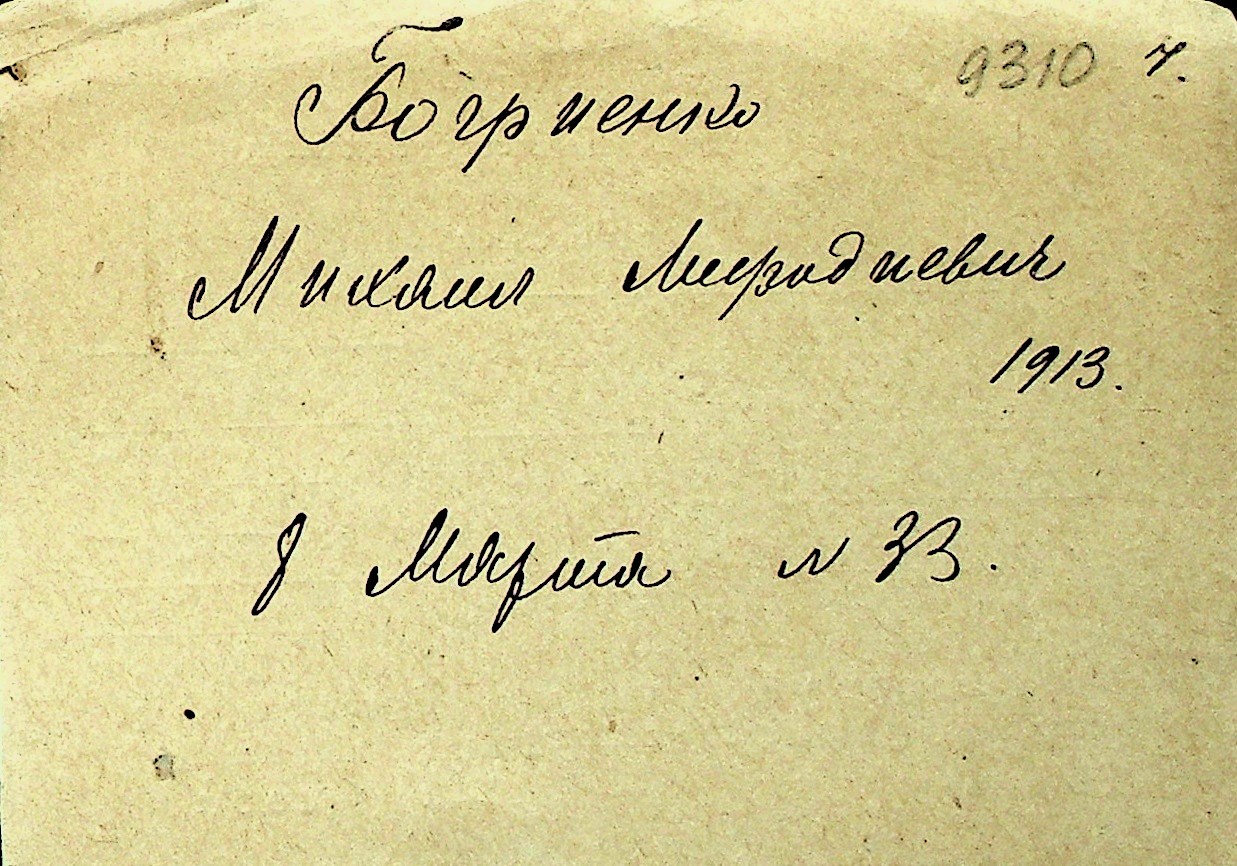 9310 ч.
Богриенко
Михаил Мефодиевич
1913.
8 Марта N 33.